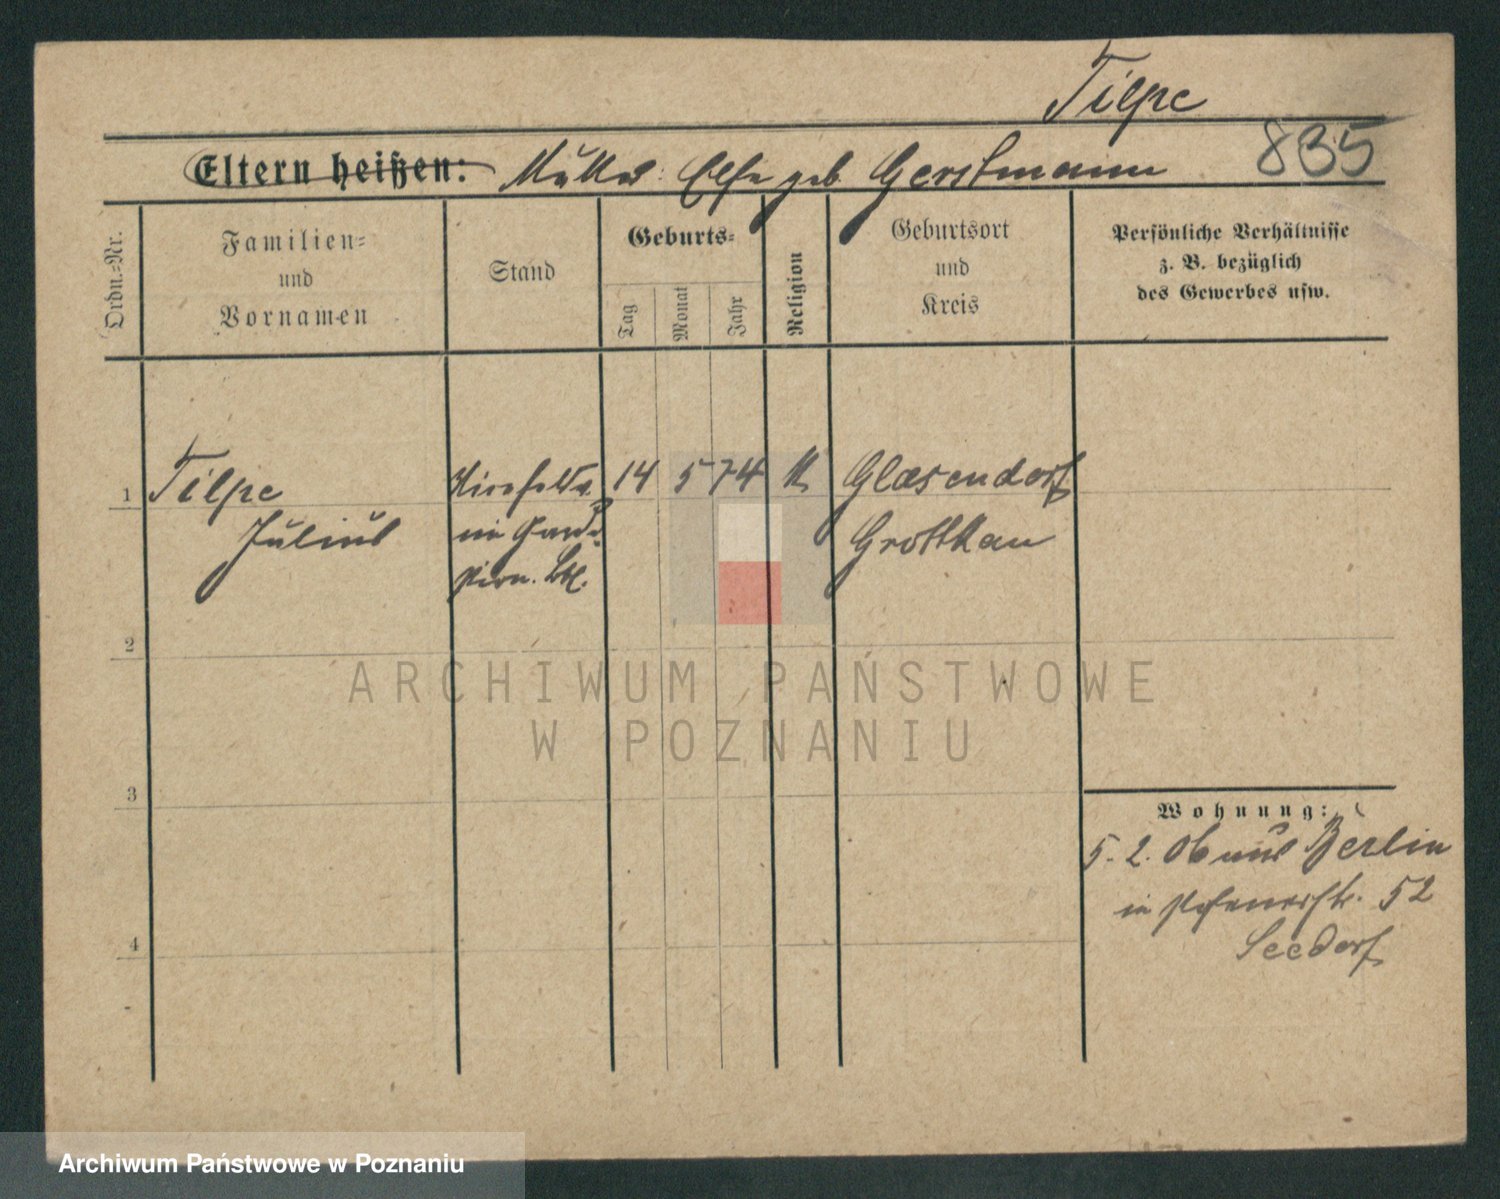 Tilpe
Eltern heißen: Mutter: Else geb. Gerstmann 835
Ordn.-Nr.
Familien-
und
Vornamen
Stand
Geburts-
Tag
Monat
Jahr
Religion
Geburtsort
und
Kreis
Persönliche Verhältnisse
z. B. bezüglich
des Gewerbes usw.
1 Tilpe 14 5 74 K Glasendorf
Julius im Grottkau
2
3
4
Wohnung:
5. 2. 06 aus Berlin
in Posenerstr. 52
Seedorf
ARCHIWUM PAŃSTWOWE
W POZNANIU
Archiwum Państwowe w Poznaniu